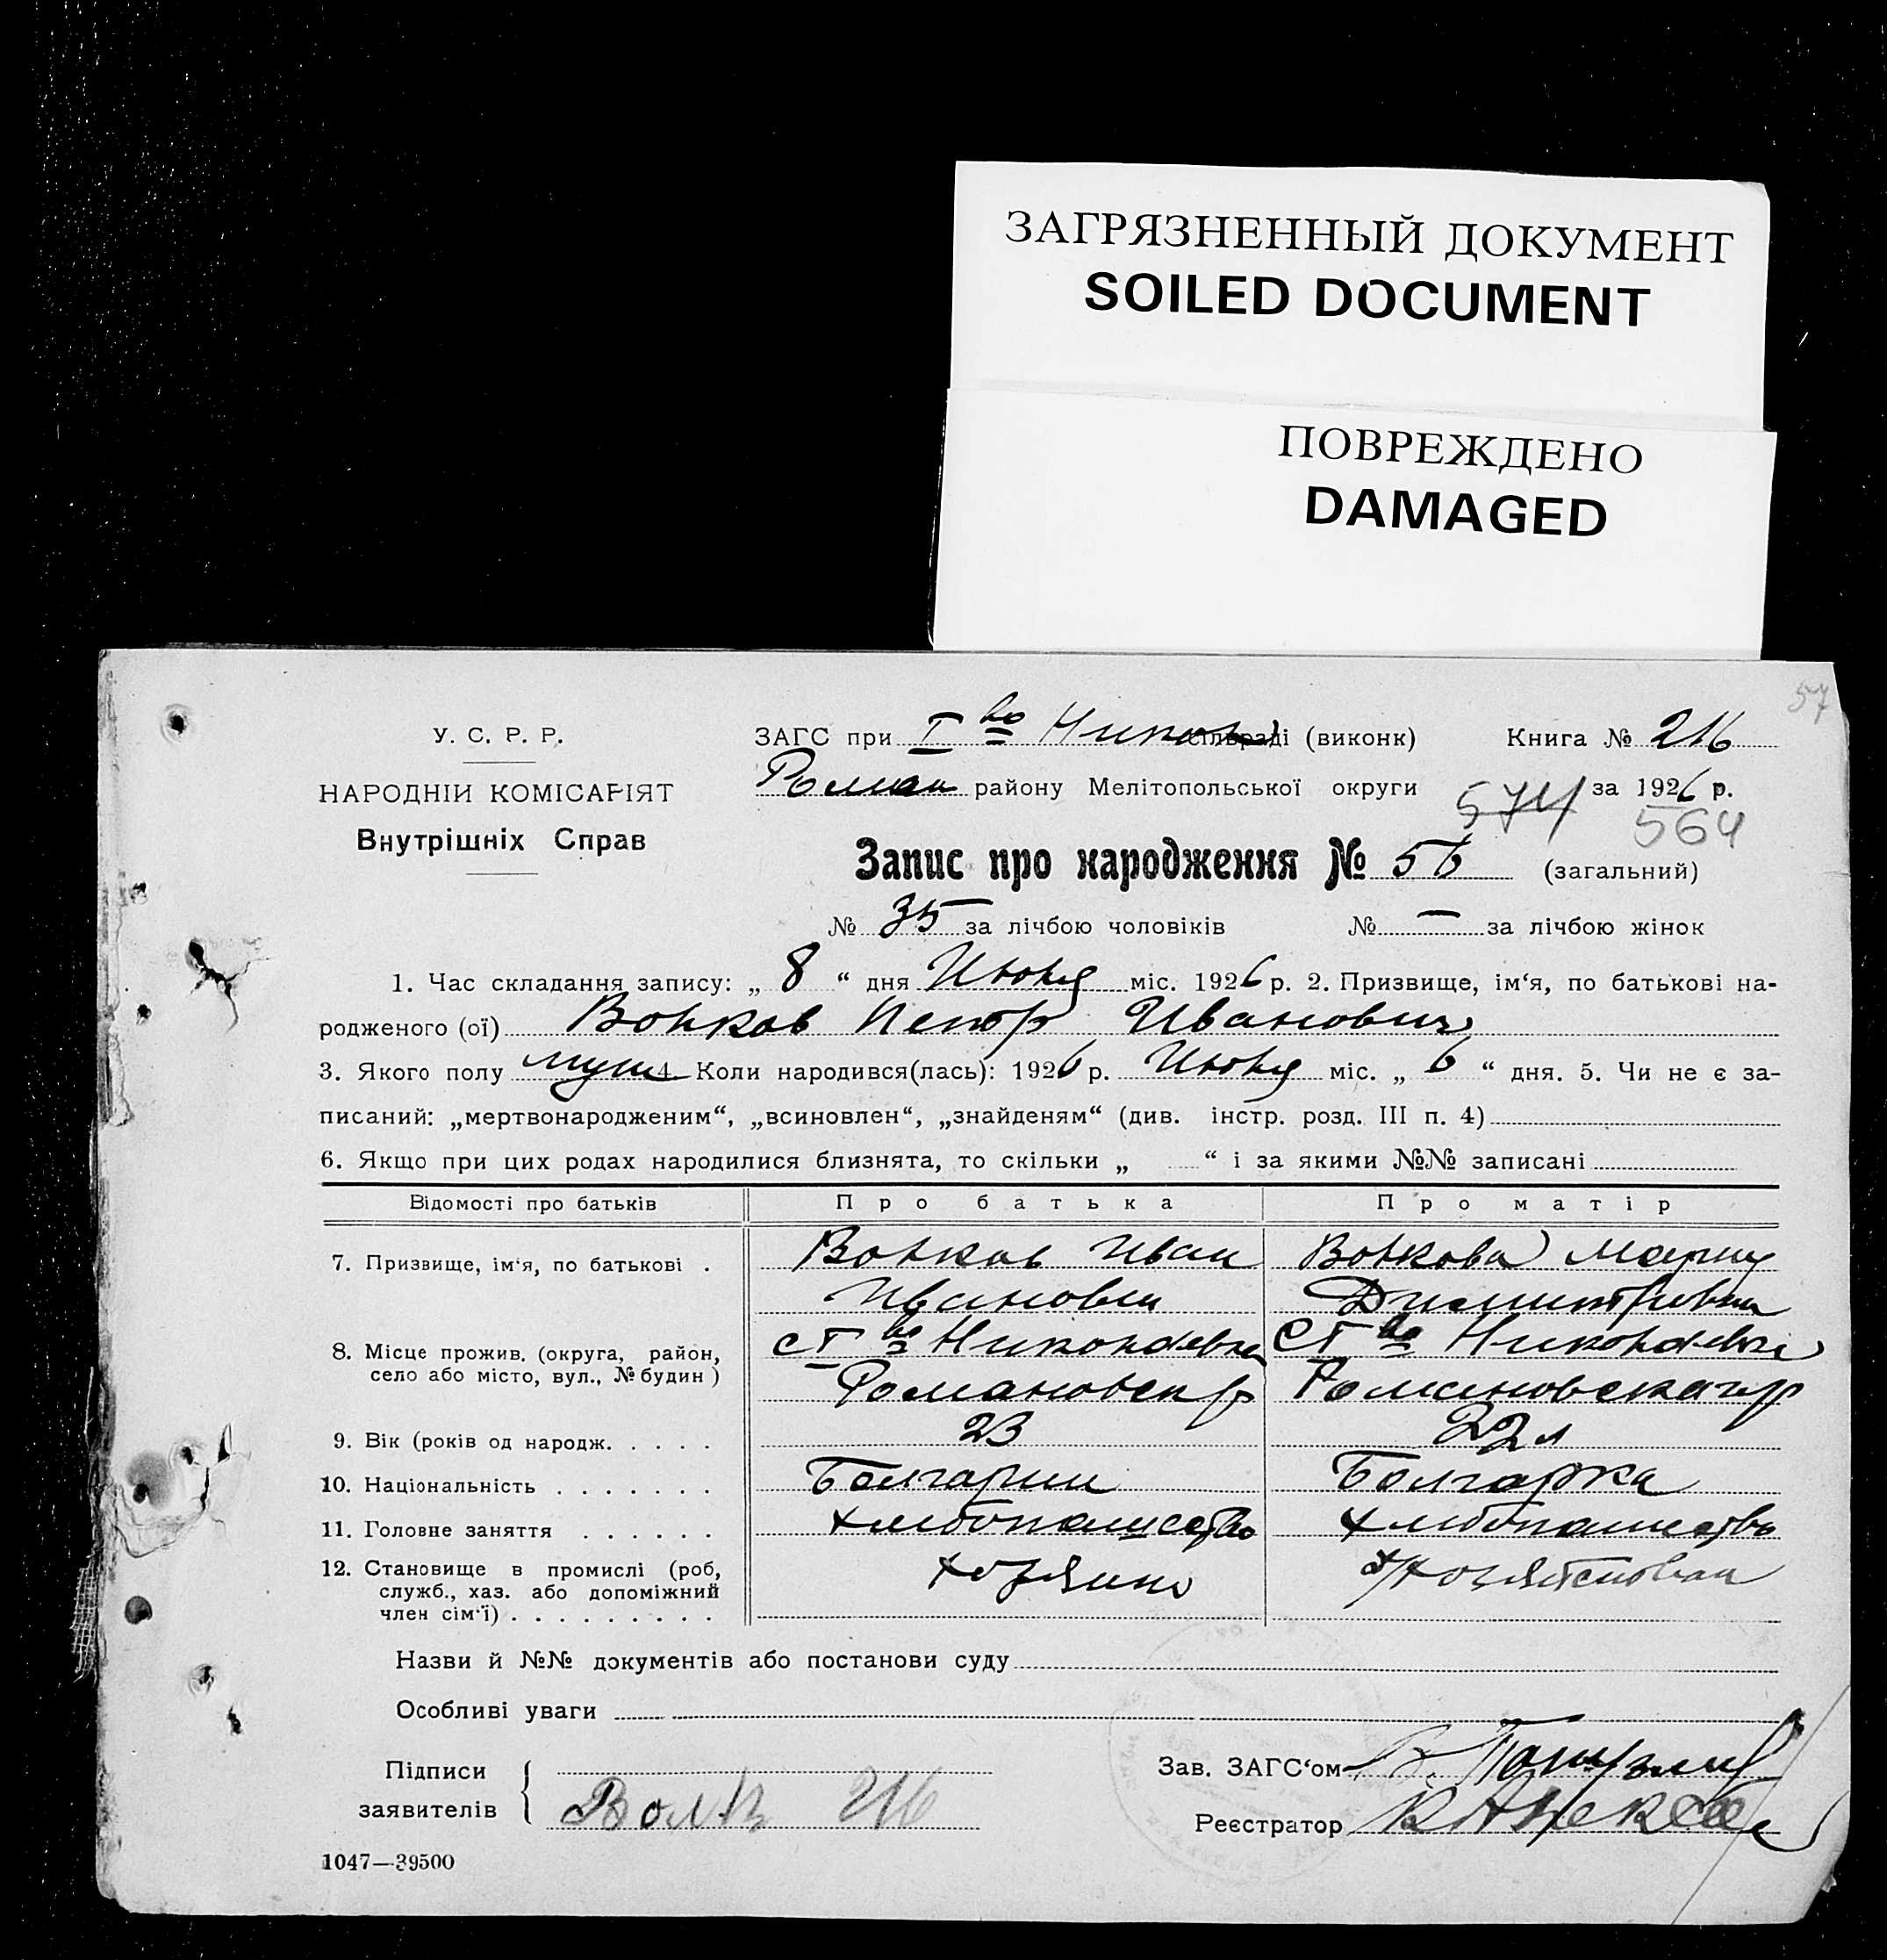 ЗАГРЯЗНЕННЫЙ ДОКУМЕНТ
SOILED DOCUMENT
ПОВРЕЖДЕНО
DAMAGED
57
У. С. Р. Р.
НАРОДНІЙ КОМІСАРІЯТ
Внутрішніх Справ
ЗАГС при І во Никон сільраді (виконк) Книга № 216
Роман району Мелітопольської округи 574 за 1926 р.
564
Запис про народження № 56 (загальний)
№ 35 за лічбою чоловіків № — за лічбою жінок
1. Час складання запису: „ 8 “ дня Июня міс. 1926 р. 2. Призвище, ім‘я, по батькові на-
родженого (ої) Вонков Петр Иванович
3. Якого полу муж 4. Коли народився(лась): 1926 р. Июня міс. „ 6 “ дня. 5. Чи не є за-
писаний: „мертвонародженим“, „всиновлен“, „знайденям“ (див. інстр. розд. III п. 4)
6. Якщо при цих родах народилися близнята, то скільки „ “ і за якими №№ записані
Відомості про батьків Про батька Про матір
7. Призвище, ім‘я, по батькові . Вонков Иван Вонкова Мария
Иванович Димитровна
8. Місце прожив. (округа, район, с І во Никоновка С І во Никоновка
село або місто, вул., № будин ) Романовск р Романовскаго р
9. Вік (років од народж. . . . . 23 22 л
10. Національність . . . . . . . Болгарин Болгарка
11. Головне заняття . . . . . . Хлебопашество Хлебопашество
12. Становище в промислі (роб, хозяин
служб., хаз. або допоміжний
член сім‘ї) . . . . . . . . .
Назви й №№ документів або постанови суду
Особливі уваги
Підписи
заявителів
Зав. ЗАГС‘ом
Реєстратор
1047—39500